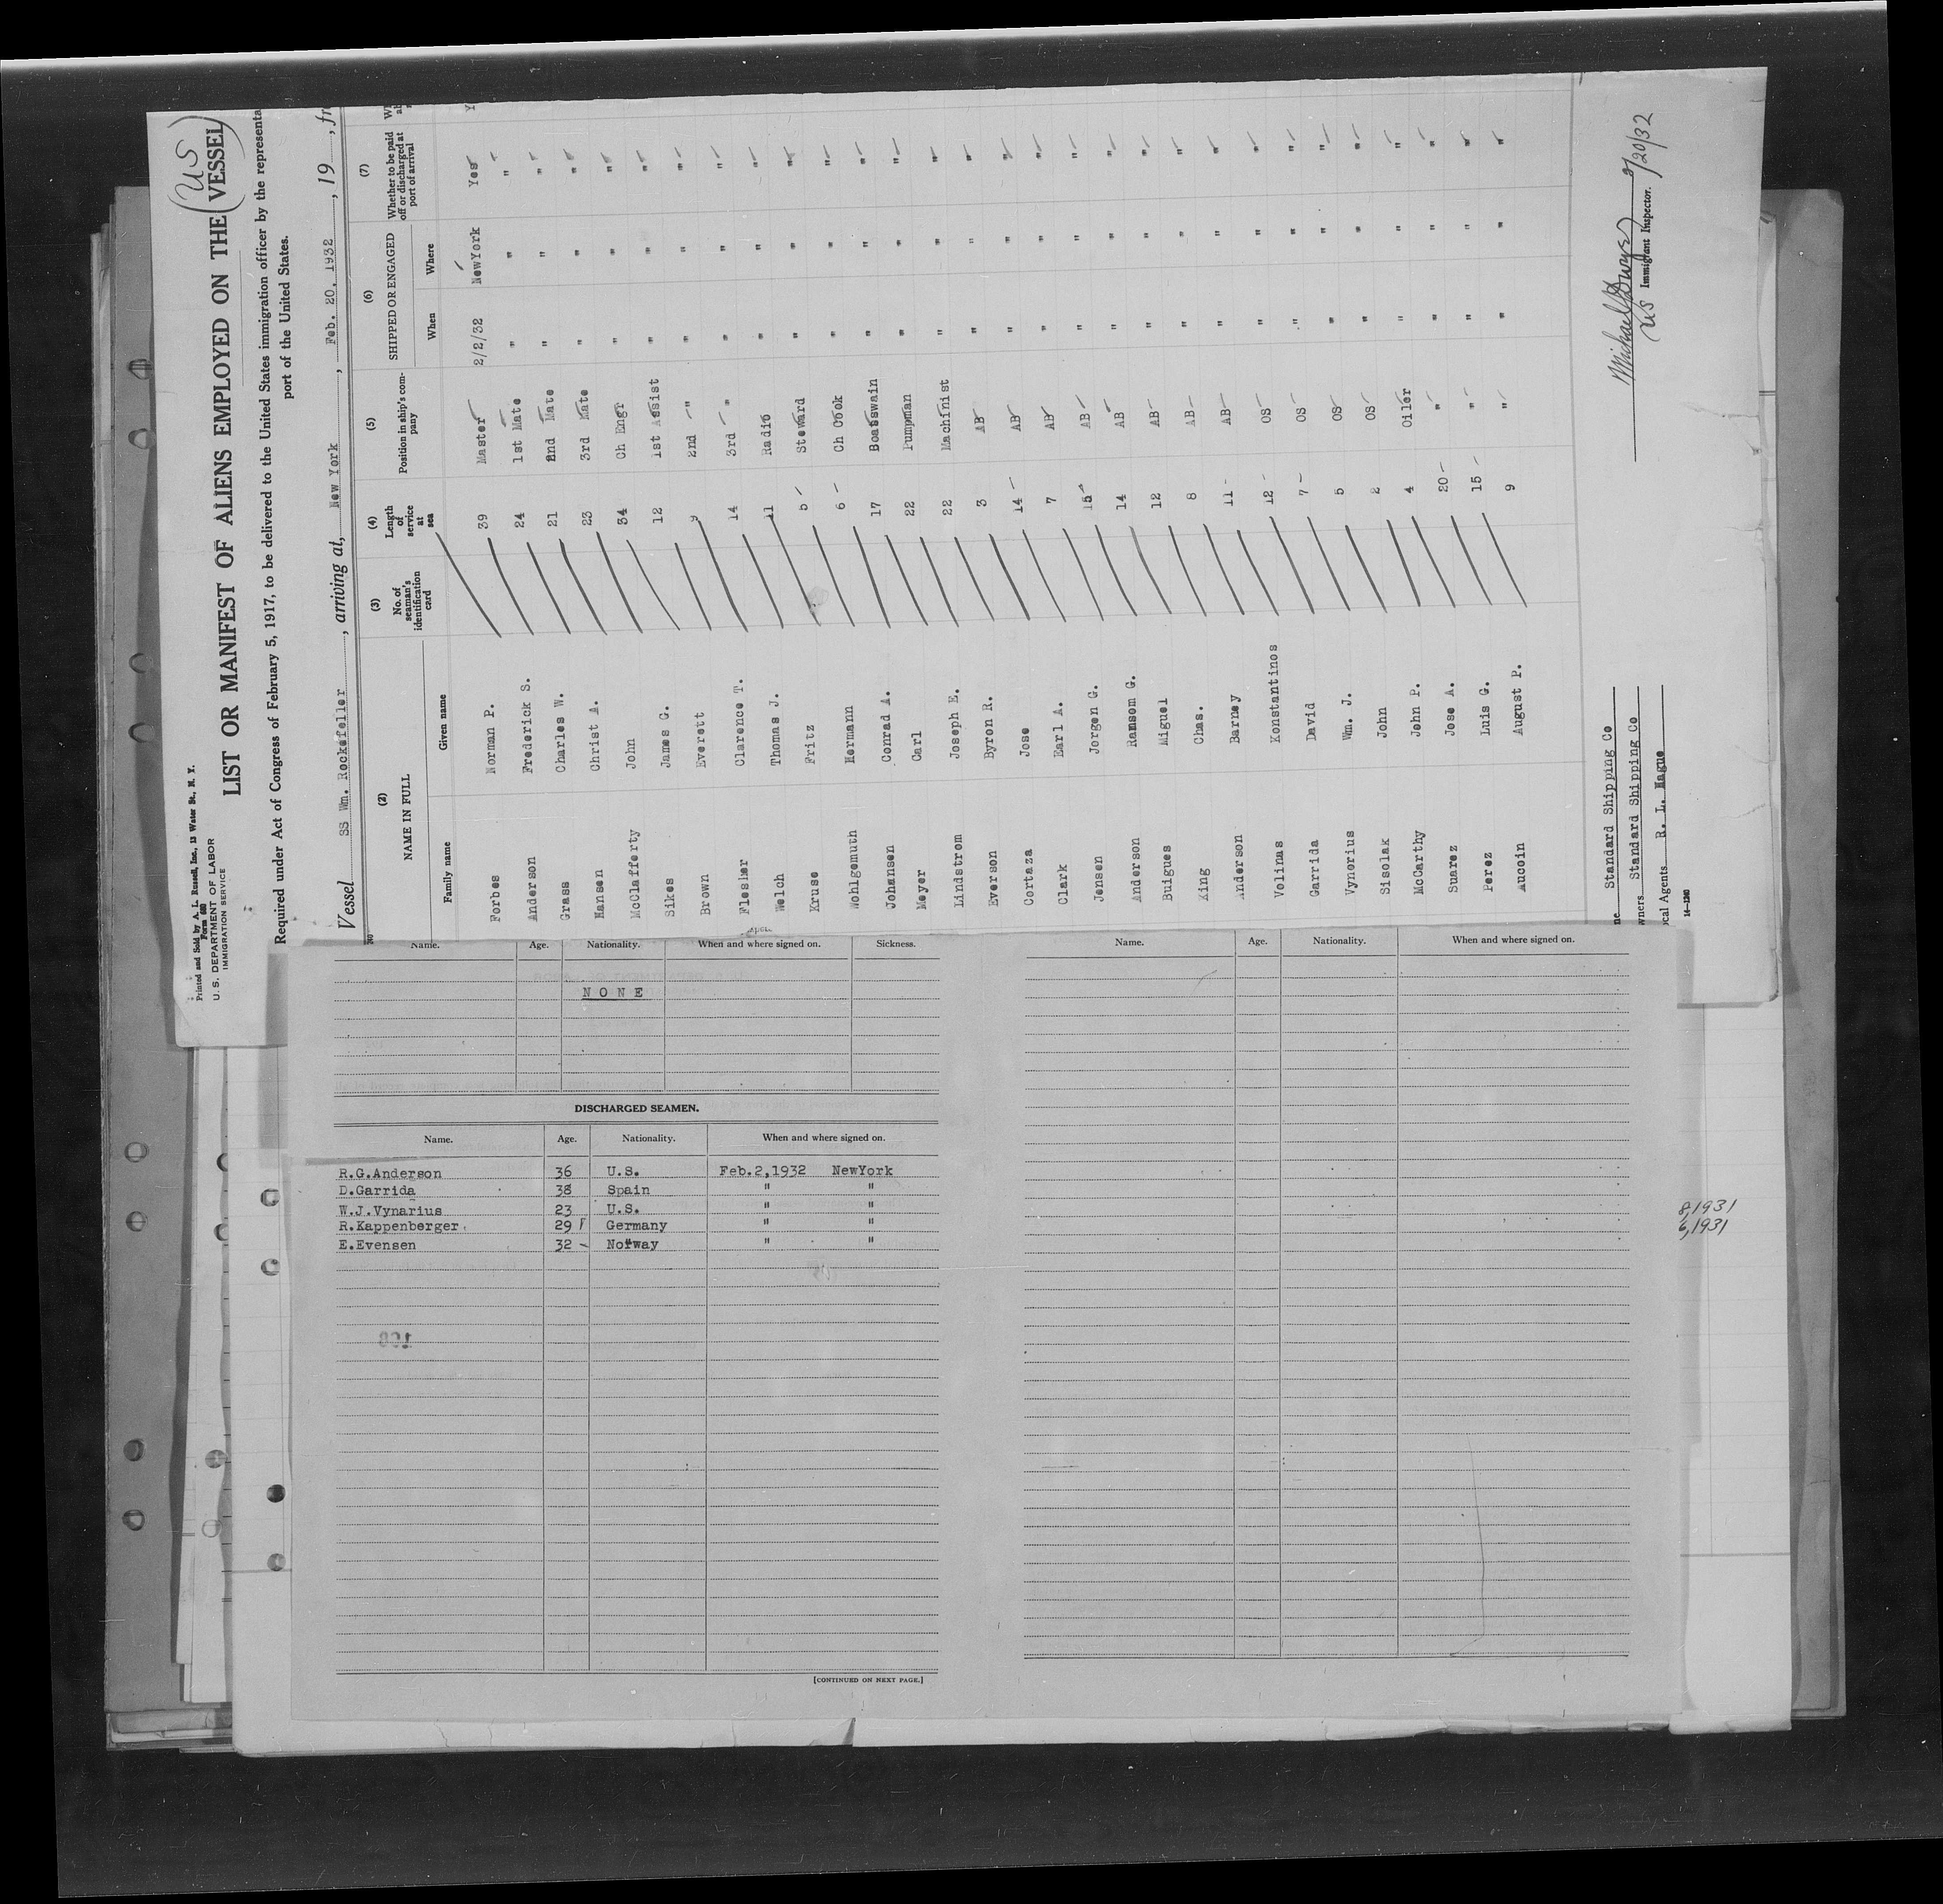 Printed and Sold by A. L. Russell, Inc., 13 Water St., N. Y.
Form 680
U. S. DEPARTMENT OF LABOR
IMMIGRATION SERVICE
LIST OR MANIFEST OF ALIENS EMPLOYED ON THE VESSEL
(US)
Required under Act of Congress of February 5, 1917, to be delivered to the United States immigration officer by the representa
port of the United States.
Vessel SS Wm. Rockefeller, arriving at, New York, Feb. 20, 1932, 19, fr
(2) (3) (4) (5) (6) (7)
NAME IN FULL No. of seaman's identification card Length of service at sea Position in ship's company SHIPPED OR ENGAGED Whether to be paid off or discharged at port of arrival
Family name Given name When Where
Forbes Norman P. 39 Master 2/2/32 NewYork Yes Y
Anderson Frederick S. 24 1st Mate " " "
Grass Charles W. 21 2nd Mate " " "
Hansen Christ A. 23 3rd Mate " " "
McClafferty John 34 Ch Engr " " "
Sikes James G. 12 1st Assist " " "
Brown Everett 9 2nd " " " "
Flesher Clarence T. 14 3rd " " " "
Welch Thomas J. 11 Radio " " "
Kruse Fritz 5 Steward " " "
Wohlgemuth Hermann 6 Ch Cook " " "
Johansen Conrad A. 17 Boatswain " " "
Meyer Carl 22 Pumpman " " "
Lindstrom Joseph E. 22 Machinist " " "
Everson Byron R. 3 AB " " "
Cortaza Jose 14 AB " " "
Clark Earl A. 7 AB " " "
Jensen Jorgen G. 15 AB " " "
Anderson Ransom G. 14 AB " " "
Buigues Miguel 12 AB " " "
King Chas. 8 AB " " "
Anderson Barney 11 AB " " "
Volinas Konstantinos 12 OS " " "
Garrida David 7 OS " " "
Vynorius Wm. J. 5 OS " " "
Sisolak John 2 OS " " "
McCarthy John P. 4 Oiler " " "
Suarez Jose A. 20 " " " "
Perez Luis G. 15 " " " "
Aucoin August P. 9 " " " "
ne Standard Shipping Co
wners Standard Shipping Co
ocal Agents R. L. Hague
14—1240
Michael J Dwyer
US Immigrant Inspector. 2/20/32
Name. Age. Nationality. When and where signed on. Sickness.
NONE
DISCHARGED SEAMEN.
Name. Age. Nationality. When and where signed on.
R.G.Anderson 36 U.S. Feb.2,1932 NewYork
D.Garrida 38 Spain " "
W.J.Vynarius 23 U.S. " "
R.Kappenberger 29 Germany " "
E.Evensen 32 Norway " "
[CONTINUED ON NEXT PAGE.]
Name. Age. Nationality. When and where signed on.
8,1931
6,1931